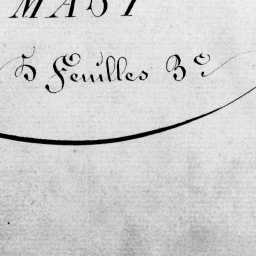 MAST
5 Feuilles 3e